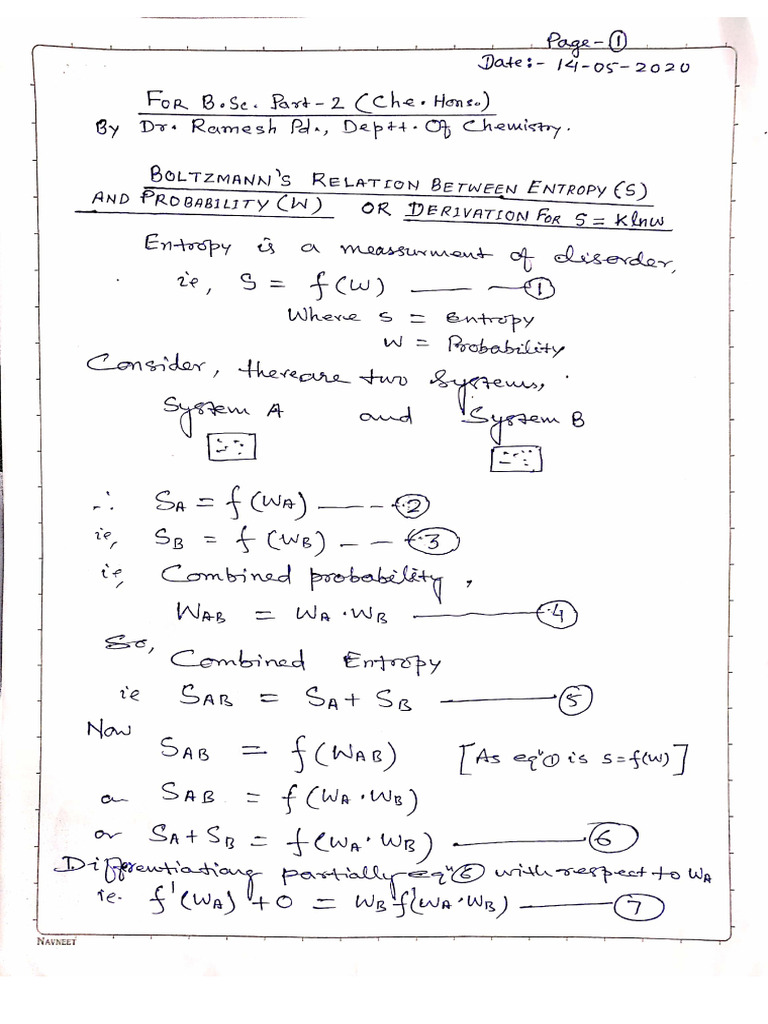 Page-①
Date:- 14-05-2020
FOR B.Sc. Part-2 (Che. Hons.)
By Dr. Ramesh Pd., Deptt. Of Chemistry.
BOLTZMANN'S RELATION BETWEEN ENTROPY (S)
AND PROBABILITY (W) OR DERIVATION FOR S = KlnW
Entropy is a measurment of disorder,
ie, S = f(W) —— — ①
Where S = Entropy
W = Probability
Consider, there are two systems,
System A and System B
∴ SA = f(WA) —— – – ②
ie, SB = f(WB) – – – ③
ie, Combined probability,
WAB = WA·WB ——— ④
So,
Combined Entropy
ie SAB = SA + SB ——— ⑤
Now
SAB = f(WAB) [As eqⁿ① is S=f(W)]
or SAB = f(WA·WB)
or SA+SB = f(WA·WB) ——— ⑥
Differentiationg partially eqⁿ⑥ with respect to WA
ie. f'(WA) + 0 = WB f'(WA·WB) ——— ⑦
NAVNEET